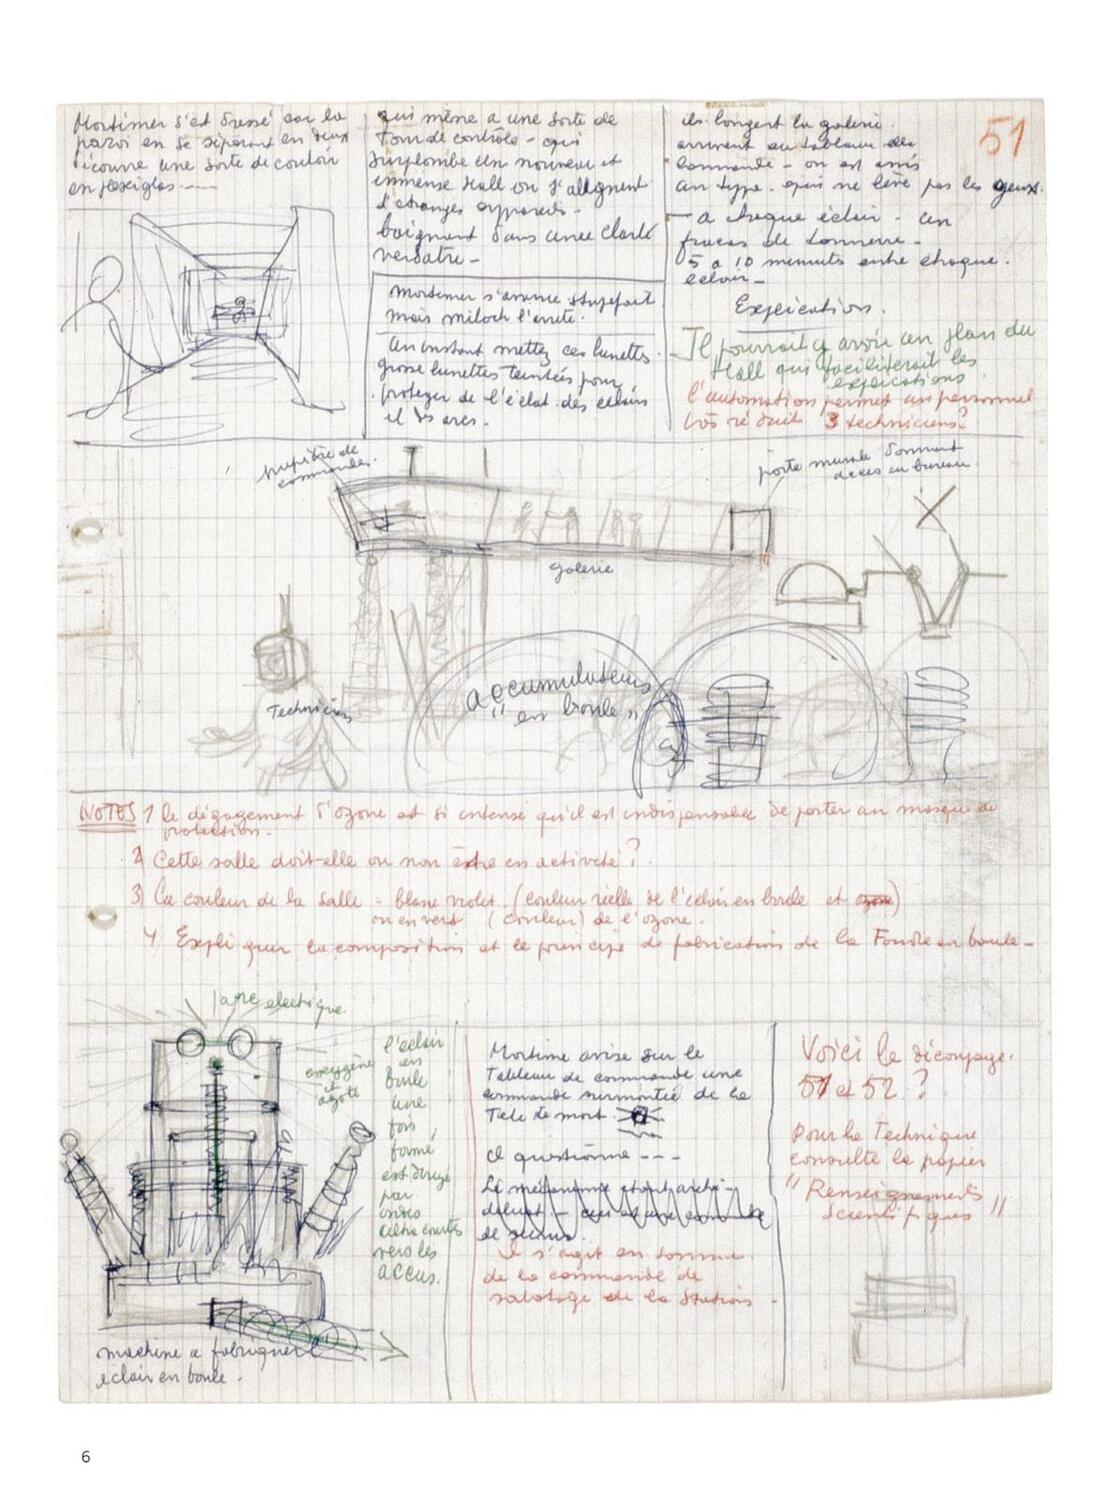 51
Mortimer s'est dressé car la
paroi en se séparant en deux
découvre une sorte de couloir
en plexiglas ----
qui mène a une sorte de
Tour de contrôle - qui
surplombe un nouveau et
immense Hall ou s'allignent
d'etranges appareils -
baignant dans une clarté
verdatre -
Mortimer s'avance stupefait
mais miloch l'arrete.
Un instant mettez ces lunettes.
grosse lunettes teintées pour
proteger de l'éclat des éclairs
et des arcs.
ils longent la galerie
arrivent au tableau de
commande - on est assis
un type. qui ne lève pas les yeux.
- a chaque éclair - un
fracas de tonnerre -
5 a 10 minuts entre chaque
éclair -
Explications.
Il pourrait y avoir un plan du
Hall qui faciliterait les
explications
l'automation permet un personnel
très réduit 3 techniciens?
pupitre de
commandes.
porte murale donnant
acces au bureau
galerie
Technicien
accumulateurs
"en boule"
NOTES 1 le dégagement d'ozone est si intense qu'il est indispensable de porter un masque de
protection.
2) Cette salle doit-elle ou non être en activité?
3) La couleur de la salle = blanc violet (couleur réelle de l'éclair en boule et ozone)
ou en vert (couleur) de l'ozone.
4 Expliquer la composition et le principe de fabrication de la Foudre en boule -
arc electrique
oxygène
et
azote
l'éclair
en
boule
une
fois
formé
est dirigé
par
ondes
ultra courtes
vers les
accus.
machine a fabriquer l'
eclair en boule.
Mortimer avise sur le
Tableau de commande une
commande surmontée de la
Tete de mort.
il questionne ---
de secours.
Il s'agit en somme
de la commande de
sabotage de la station -
Voici le découpage.
51 et 52 ?
Pour la Technique
consulte le papier
"Renseignements
Scientifiques"
6